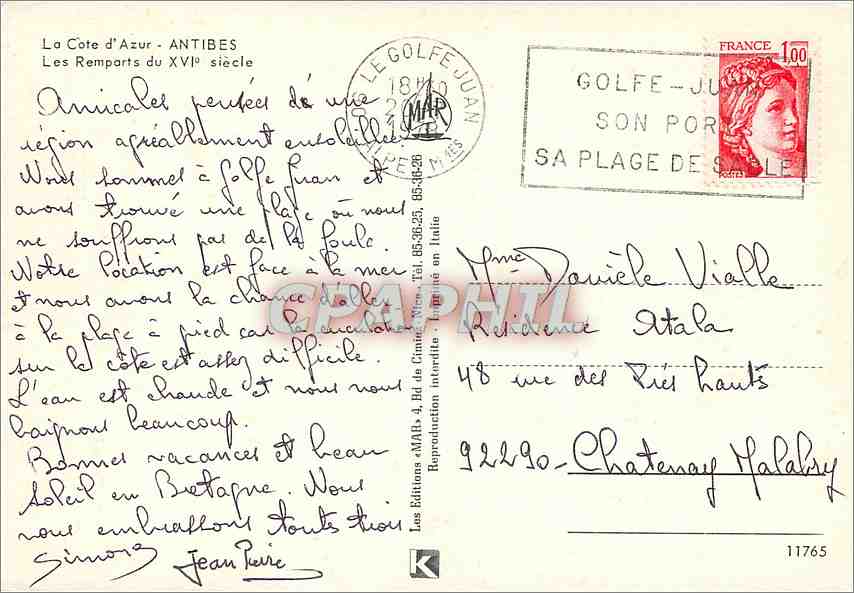 La Cote d'Azur - ANTIBES
Les Remparts du XVIº siècle
Amicales pensées de une
région agréablement ensoleillée
Nous sommes à Golfe Juan et
avons trouvé une plage où nous
ne souffrons pas de la foule.
Notre location est face à la mer
et nous avons la chance d'aller
à la plage à pied car la circulation
sur la côte est assez difficile.
L'eau est chaude et nous nous
baignons beaucoup.
Bonnes vacances et beau
soleil en Bretagne. Nous
nous embrassons toutes trois
Simone
Jean Pierre
LE GOLFE JUAN
18H
ALPES MMES
MAR
GOLFE-JU
SON POR
SA PLAGE DE S LE
FRANCE 1,00
POSTES
Les Editions «MAR» 4, Bd de Cimiez Nice - Tél. 85-36-25, 85-36-26
Reproduction interdite - Imprimé en Italie
CPAPHIL
Mme Danièle Vialle
Résidence Atala
48 rue des Prés hauts
92290 - Chatenay Malabry
K
11765